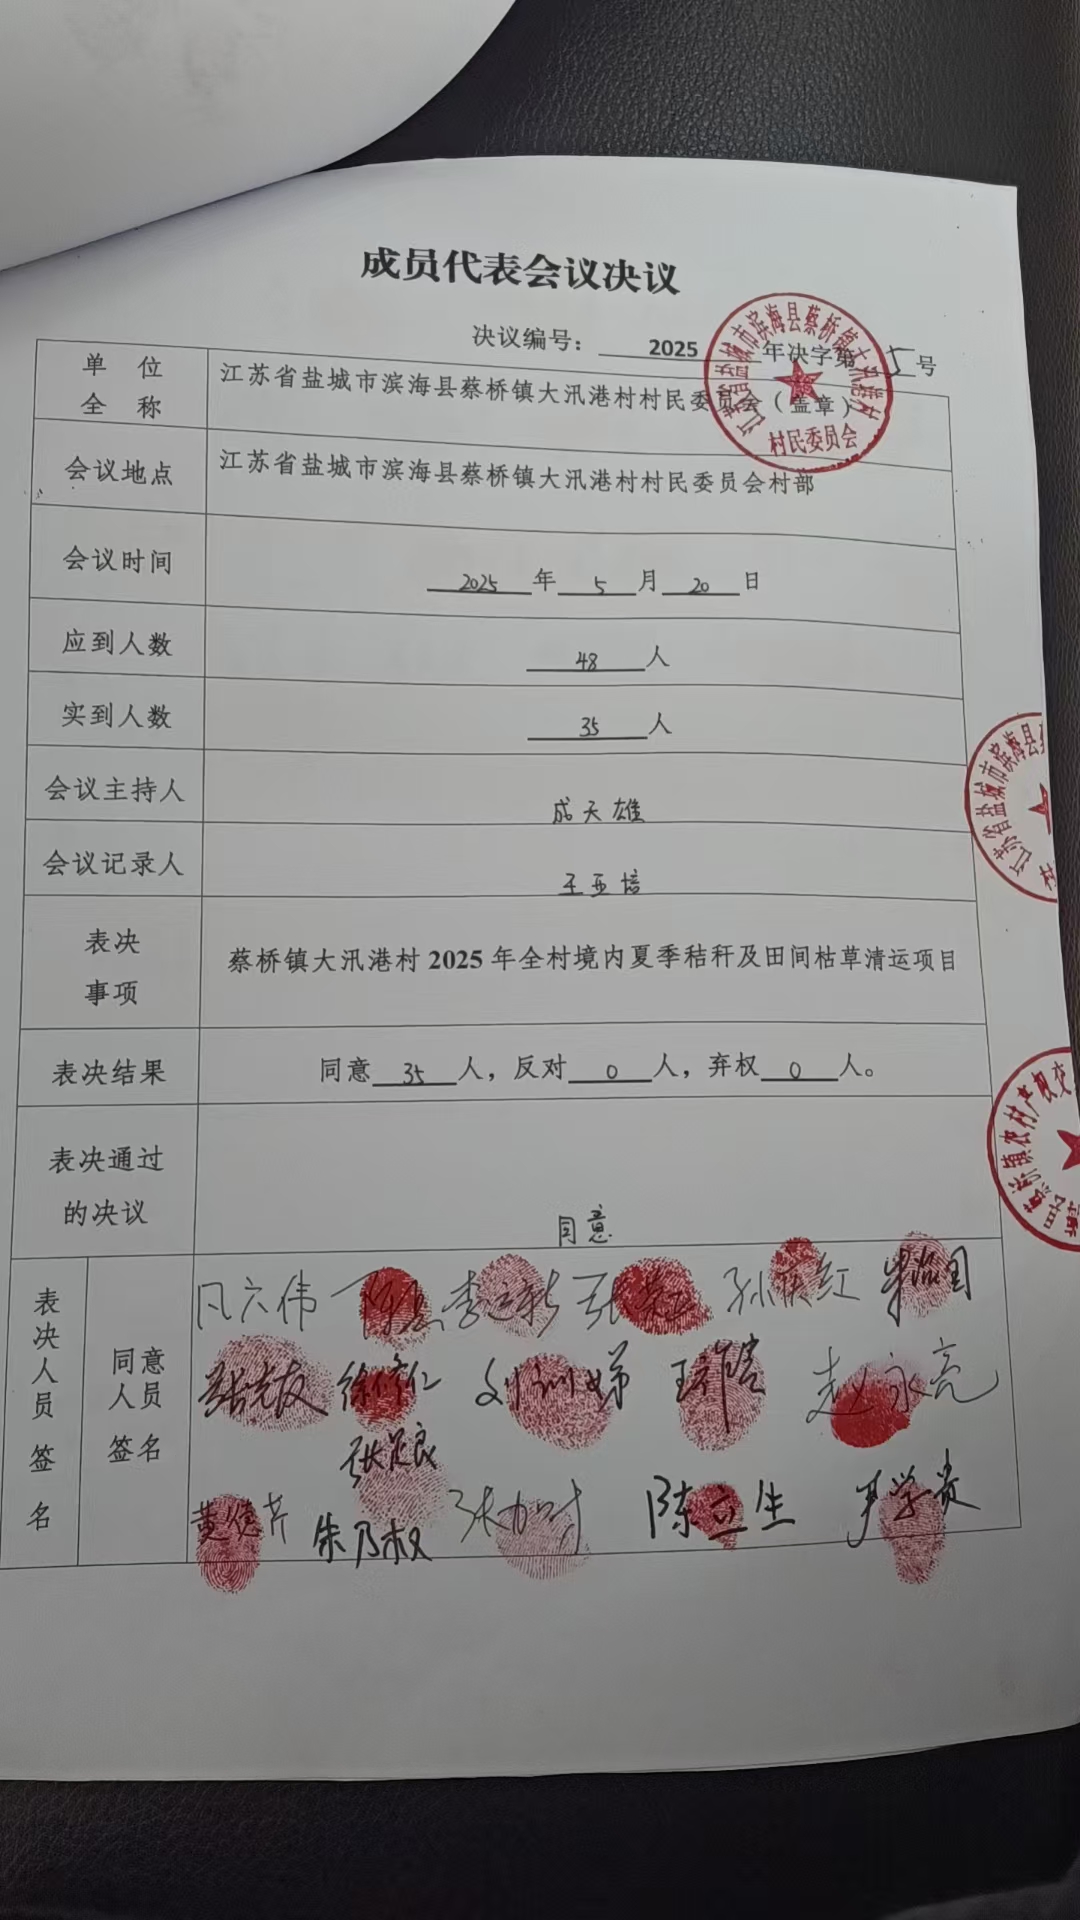 成员代表会议决议
决议编号： 2025 年决字第 5 号
单 位
全 称
江苏省盐城市滨海县蔡桥镇大汛港村村民委员会（盖章）
会议地点
江苏省盐城市滨海县蔡桥镇大汛港村村民委员会村部
会议时间
2025 年 5 月 20 日
应到人数
48 人
实到人数
35 人
会议主持人
成天雄
会议记录人
王亚培
表决
事项
蔡桥镇大汛港村 2025 年全村境内夏季秸秆及田间枯草清运项目
表决结果
同意 35 人，反对 0 人，弃权 0 人。
表决通过
的决议
同意
表决人员签名
同意
人员
签名
孙庆红
徐修仁 刘训娣 赵永亮
张足良
黄德芹 朱乃权 张加对 陈立生 尹学贵
江苏省盐城市滨海县蔡桥镇大汛港村
村民委员会
江苏省盐城市滨海县
蔡桥镇农村产权交